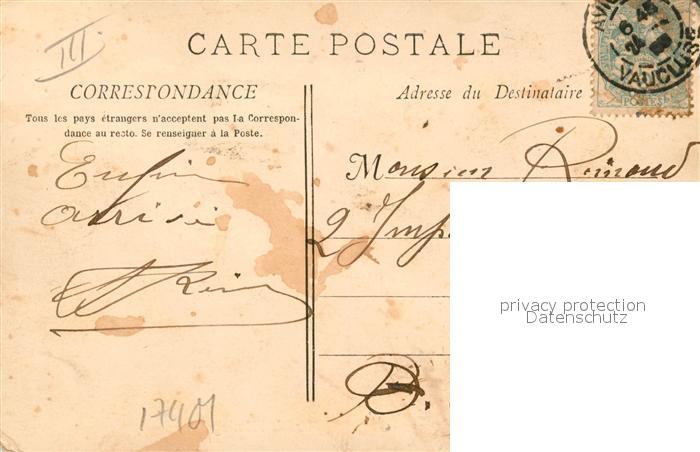 III
CARTE POSTALE
AVI
6 45
24
VAUCLUSE
POSTES
CORRESPONDANCE
Tous les pays étrangers n'acceptent pas la Correspon-
dance au recto. Se renseigner à la Poste.
Adresse du Destinataire
Enfin
arrivé
Monsieur
2 Imp
B.
17401
privacy protection
Datenschutz